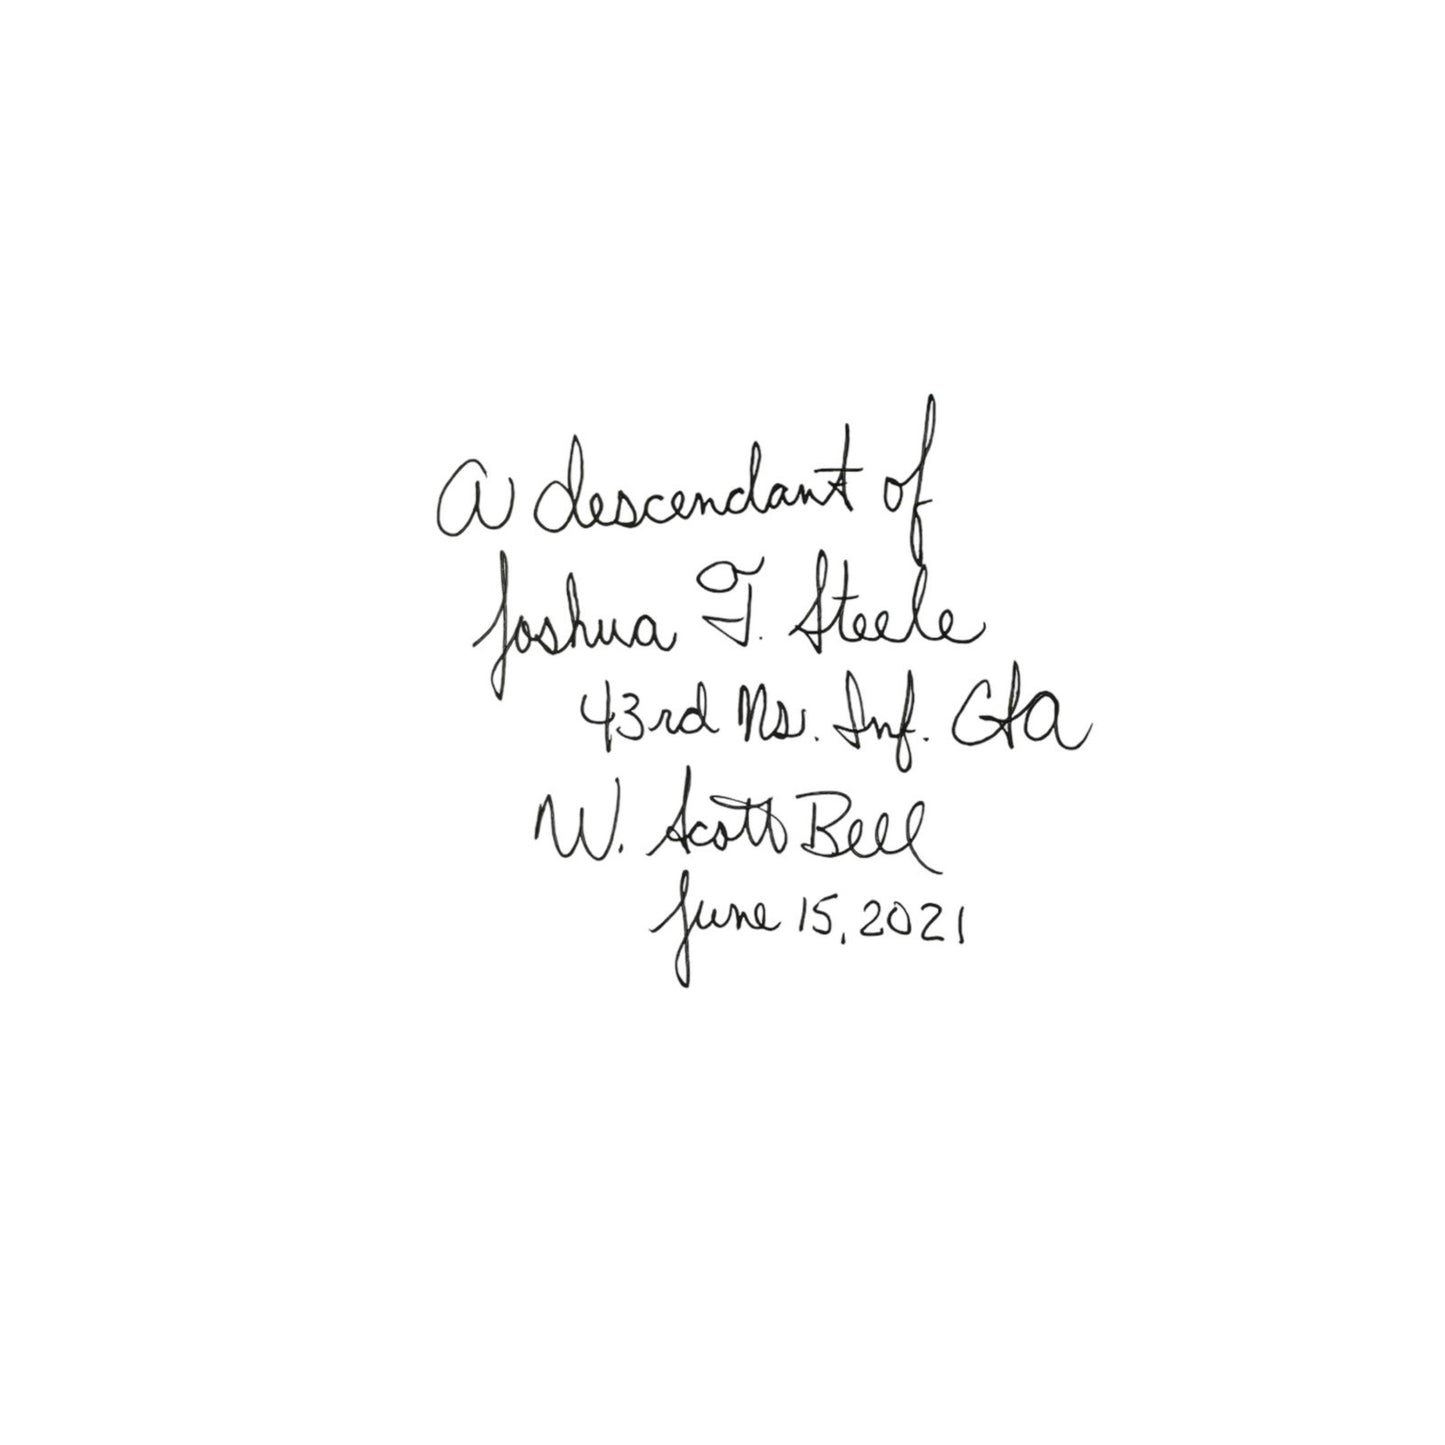 A descendant of
Joshua T. Steele
43rd Ms. Inf. CSA
W. Scott Bell
June 15, 2021